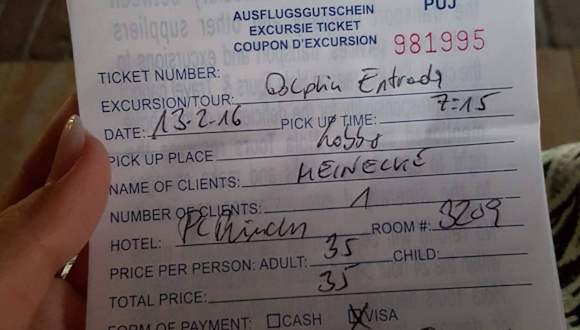 AUSFLUGSGUTSCHEIN PUJ
EXCURSIE TICKET
COUPON D'EXCURSION 981995
TICKET NUMBER:
EXCURSION/TOUR: Dolphin Entrada
DATE: 13-2-16 PICK UP TIME: 7:15
PICK UP PLACE Lobby
NAME OF CLIENTS: MEINECKE
NUMBER OF CLIENTS: 1
HOTEL: ROOM #: 3209
PRICE PER PERSON: ADULT: 35 CHILD:
TOTAL PRICE: 35
FORM OF PAYMENT: CASH VISA